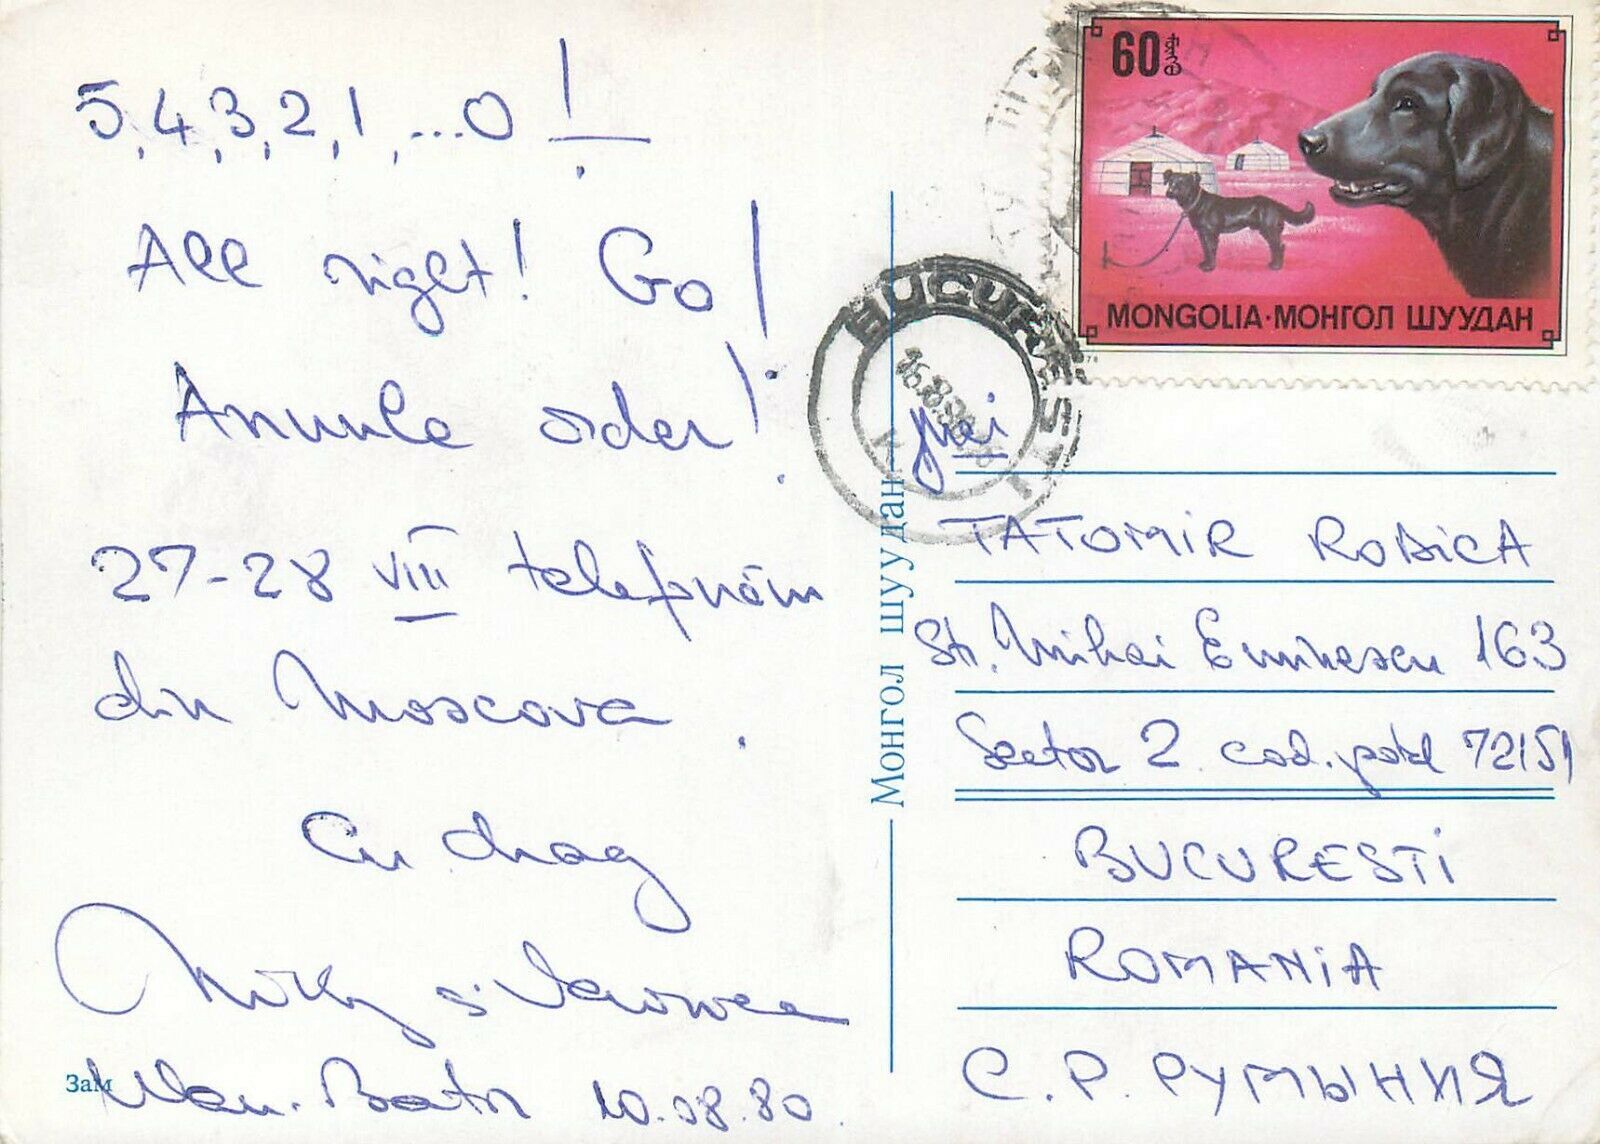 5, 4, 3, 2, 1, ...0!
All right! Go!
Anunțe order!
27-28 VIII telefonăm
din Moscova.
Cu drag
Micky și
Ulan-Bator 10.08.80
Зам
Монгол шуудан
60
MONGOLIA·МОНГОЛ ШУУДАН
BUCUREȘTI
16.8.80
TATOMIR RODICA
Str. Mihai Eminescu 163
Sector 2 cod. poștal 72151
BUCURESTI
ROMANIA
С.Р. РУМЫНИЯ